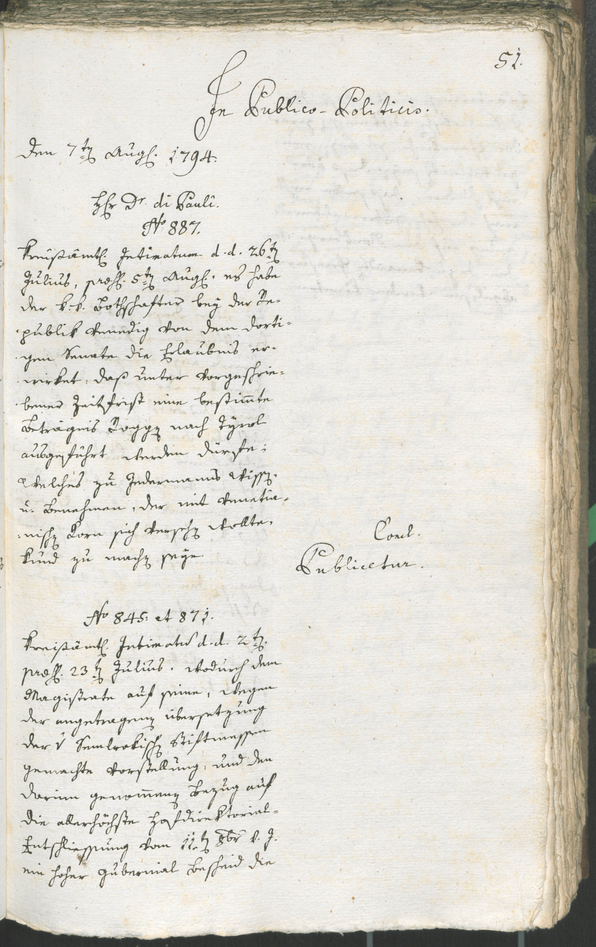 51.
In Publico-Politicis.
den 7ten Aug. 1794.
Hr Dr di Pauli.
No 887.
Kreisämtl. Intimatum d. d. 26ten
Julius, praes. 5ten Aug. es habe
der k. k. Bothschafter bey der Re-
publik Venedig von dem dorti-
gen Senate die Erlaubnis er-
wirket, daß unter vorgeschrie-
bener Zeitfrist eine bestimte
Beträgnis Roggen nach Tyrol
ausgeführt werden dürfte;
Welches zu Jedermanns Wissen
u. Benehmen, der mit Venetia-
nischen Korn sich versehen wollte,
kund zu machen seye.
Concl.
Publicetur.
No 845. et 871.
Kreisämtl. Intimatum d. d. 2ten
praes. 23ten Julius. wodurch dem
Magistrate auf seine, wegen
der angetragenen übersetzung
der Stiftmessen
gemachte Vorstellung, und den
darinn genommenen Bezug auf
die allerhöchste Hofdirektorial-
Entschliessung vom 11ten v. J.
ein hoher Gubernial Bescheid die